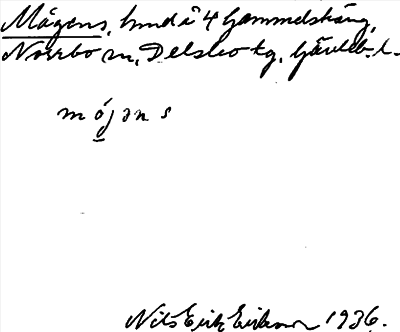 Mågens, hmd å 4 Gammelsäng,
Norrbo sn, Delsbo tg, Gävleb. l.
mójən s
Nils Erik Eriksson 1936.